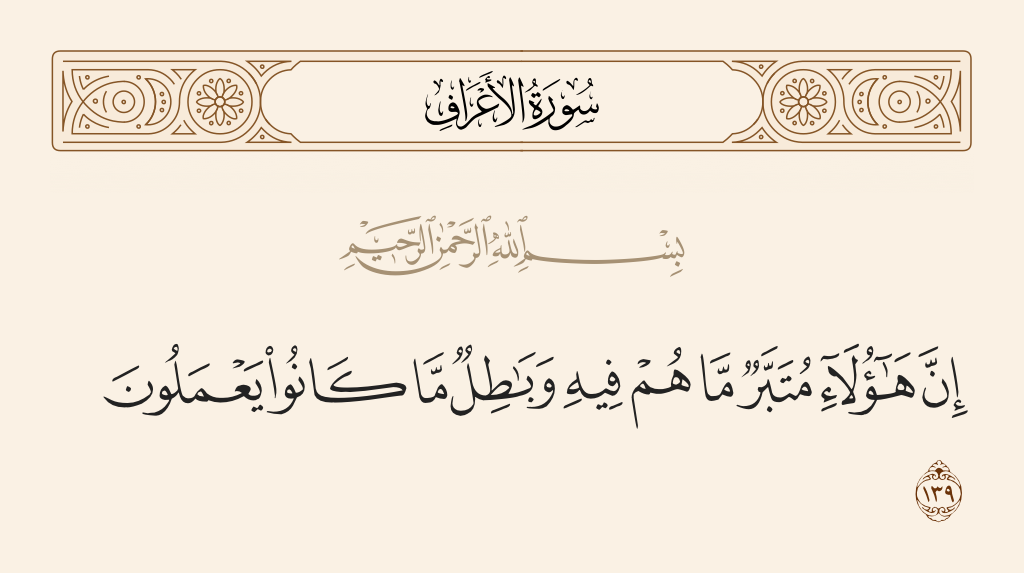 سُورَةُ الأَعْرَافِ
بِسْمِ ٱللَّهِ ٱلرَّحْمَٰنِ ٱلرَّحِيمِ
إِنَّ هَـٰٓؤُلَآءِ مُتَبَّرٌ مَّا هُمْ فِيهِ وَبَـٰطِلٌ مَّا كَانُوا۟ يَعْمَلُونَ
١٣٩